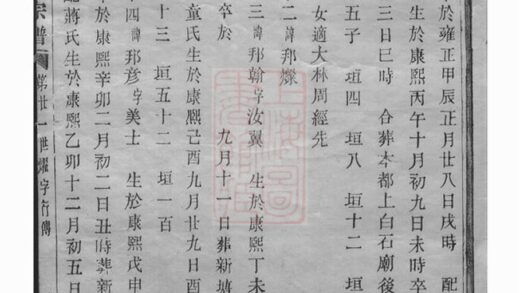 於雍正甲辰正月廿八日戌時 配
生於康熙丙午十月初九日未時卒
三日巳時 合葬本都上白石廟後
五子 垣四 垣八 垣十二 垣
女適大林周經先
二諱邦燦
三諱邦翰字汝翼 生於康熙丁未
卒於 九月十一日葬新塘
童氏生於康熙己酉九月廿九日酉
十三 垣五十二 垣一百
十四諱邦彥字美士 生於康熙戊申
卒於康熙辛卯二月初二日丑時葬新
配蔣氏生於康熙乙卯十二月初五日
宗譜 第廿一世燿字行傳